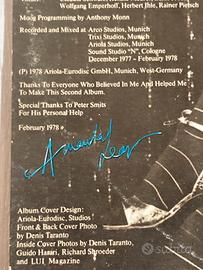 Wolfgang Emperhoff, Herbert Ihle, Rainer Pietsch
Moog Programming by Anthony Monn
Recorded and Mixed at Arco Studios, Munich
Trixi Studios, Munich
Ariola Studios, Munich
Sound Studio "N", Cologne
December 1977 - February 1978
(P) 1978 Ariola-Eurodisc GmbH, Munich, West-Germany
Thanks To Everyone Who Believed In Me And Helped Me
To Make This Second Album.
Special Thanks To Peter Smits
For His Personal Help
February 1978
Amanda Lear
Album Cover Design:
Ariola-Eurodisc, Studios
Front & Back Cover Photo
by Denis Taranto
Inside Cover Photos by Denis Taranto,
Guido Hasari, Richard Schroeder
and LUI Magazine
subito